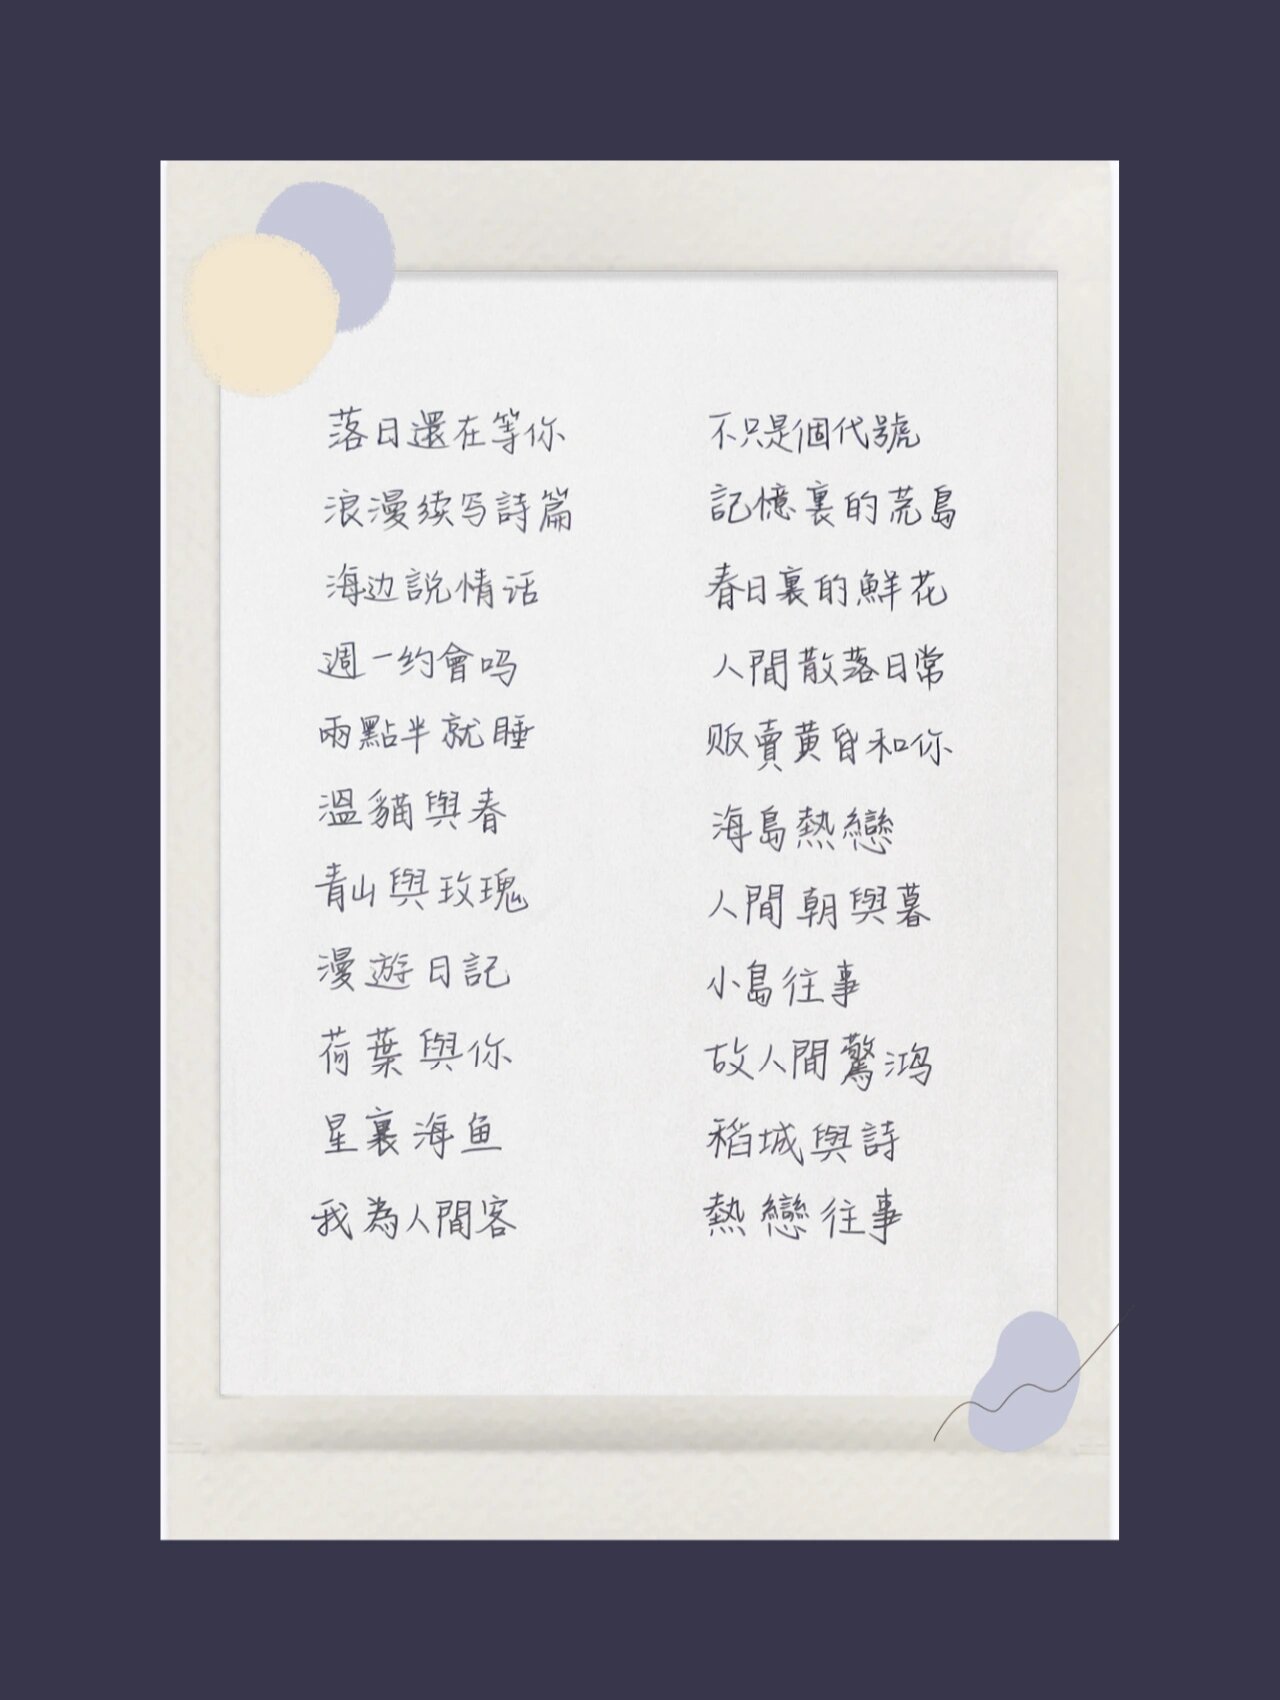 落日還在等你
浪漫续写詩篇
海边説情话
週一约會吗
兩點半就睡
溫貓與春
青山與玫瑰
漫遊日記
荷葉與你
星裏海鱼
我為人間客
不只是個代號
記憶裏的荒島
春日裏的鮮花
人間散落日常
贩賣黄昏和你
海島熱戀
人間朝與暮
小島往事
故人間驚鸿
稻城與詩
熱戀往事